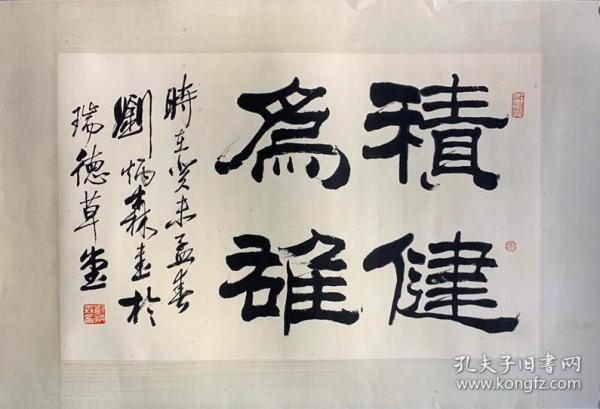 積健
為雄
時在癸未孟春
劉炳森書於
瑞德草堂
孔夫子旧书网
www.kongfz.com